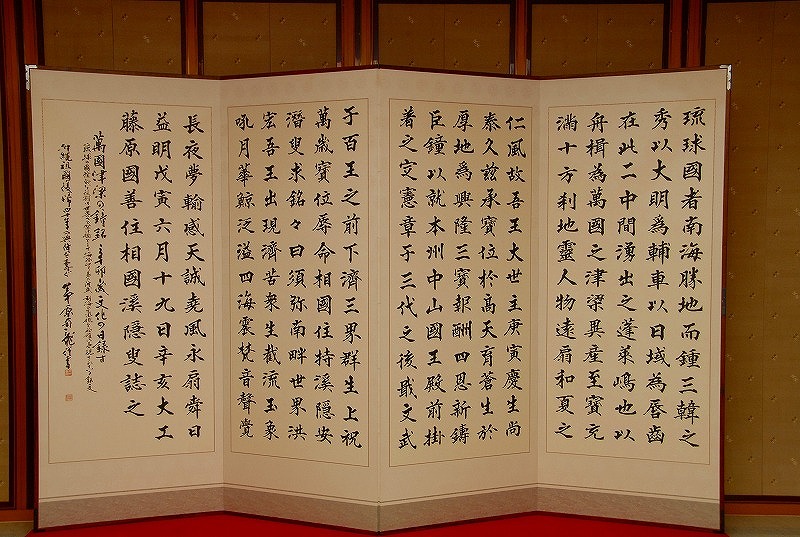 琉球國者南海勝地而鍾三韓之
秀以大明爲輔車以日域為唇齒
在此二中間湧出之蓬莱嶋也以
舟楫為萬國之津梁異産至寶充
滿十方刹地靈人物遠扇和夏之
仁風故吾王大世主庚寅慶生尚
泰久兹承寶位於高天育蒼生於
厚地為興隆三寶報酬四恩新鑄
巨鐘以就本州中山國王殿前掛
著之定憲章于三代之後戢文武
于百王之前下濟三界群生上祝
萬歳寶位辱命相國住持溪隠安
潛叟求銘々曰須弥南畔世界洪
宏吾王出現濟苦衆生截流玉象
吼月華鯨泛溢四海震梵音聲覺
長夜夢輸感天誠堯風永扇舜日
益明戊寅六月十九日辛亥大工
藤原國善住相國溪隠叟誌之
萬國津梁の鐘銘 辛卯歳文化の日録す